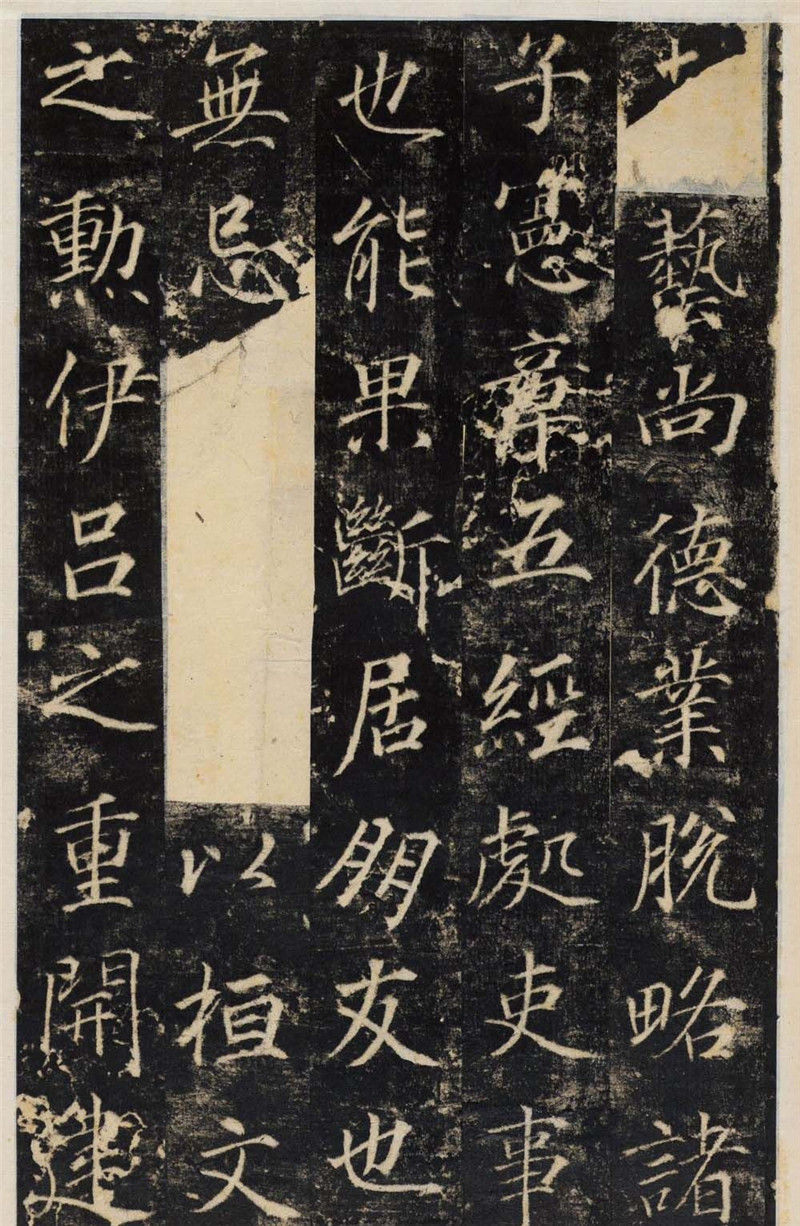 藝尚德業脫略諸
子憲章五經處吏事
也能果斷居朋友也
無忌以桓文
之勳伊呂之重開建